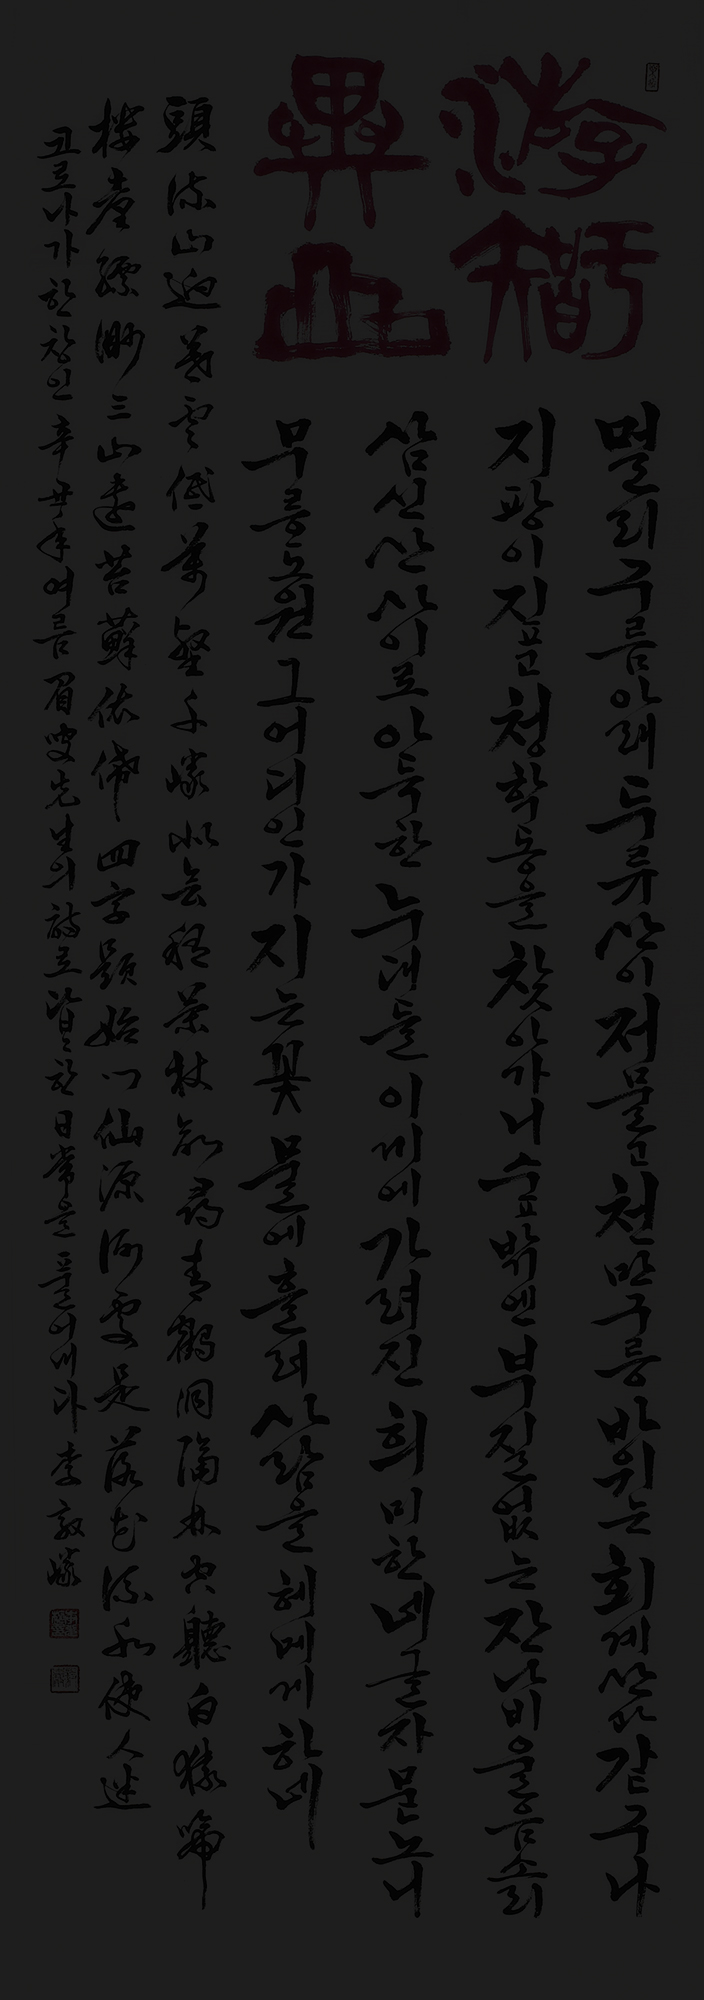 游智
異山
멀리 구름 아래 두류산이 저물고 천만 구릉 바위는 회계산과 같구나
지팡이 짚고 청학동을 찾아가니 숲 밖엔 부질없는 잔나비 울음소리
삼신산 사이로 아득한 누대들 이끼에 가려진 희미한 네 글자 묻노니
무릉도원 그 어디인가 지는 꽃 물에 흘려 사람을 헤메게 하네
頭流山迥暮雲低萬壑千巖似會稽策杖欲尋青鶴洞隔林空聽白猿啼
樓臺縹緲三山遠苔蘚依俙四字題始問仙源何處是落花流水使人迷
코로나가 한창인 辛丑年 여름 眉叟先生의 詩로 답답한 日常을 풀어내다 李敦